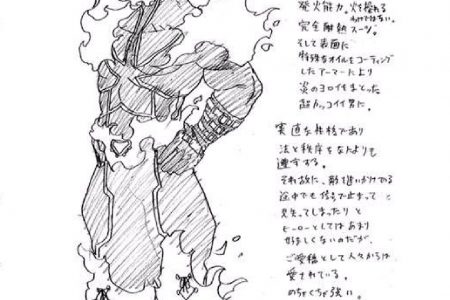 発火能力。火を操れる
わけではない。
完全耐熱スーツ。
そして表面に
特殊なオイルをコーティング
したアーマーにより
炎のヨロイをまとった
超カッコイイ男に。
実直な性格であり
法と秩序をなんよりも
遵守する。
それ故に、敵を追いかけてる
途中でも信号で止まって
見失ってしまったりと
ヒーローとしてはあまり
好ましくないのだが、
ご愛嬌として人々からは
愛されている。
めちゃくちゃ強い。